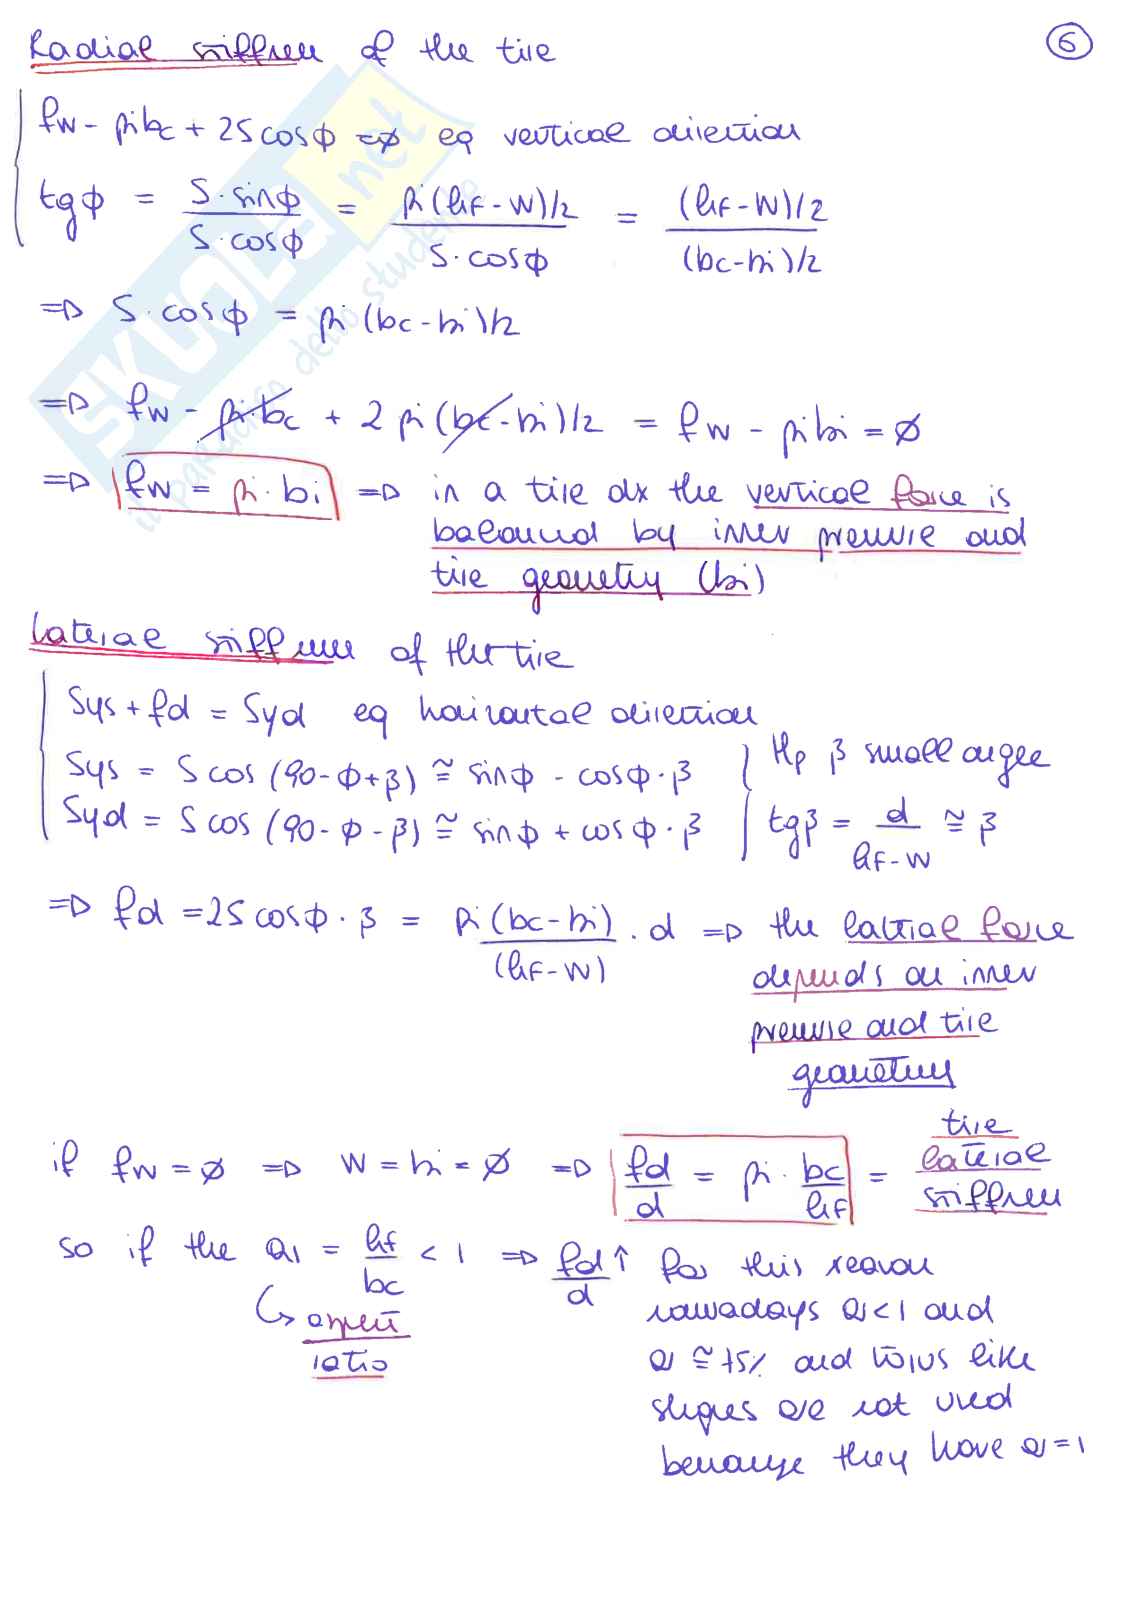 Radial stiffness of the tire
6
fw - pi bc + 2S cosϕ = ø eq vertical direction
tgϕ = S·sinϕ / S·cosϕ = pi(hF-w)/2 / S·cosϕ = (hF-w)/2 / (bc-bi)/2
=> S·cosϕ = pi(bc-bi)/2
=> fw - pi·bc + 2 pi(bc-bi)/2 = fw - pi bi = ø
=> fw = pi·bi => in a tire dx the vertical force is
balanced by inner pressure and
tire geometry (bi)
Lateral stiffness of the tire
Sys + fd = Syd eq horizontal direction
Sys = S cos(90-ϕ+β) ≅ sinϕ - cosϕ·β Hp β small angle
Syd = S cos(90-ϕ-β) ≅ sinϕ + cosϕ·β tgβ = d / hF-w ≅ β
=> fd = 2S cosϕ·β = pi(bc-bi) / (hF-w) · d => the lateral force
depends on inner
pressure and tire
geometry
if fw = ø => w = bi = ø => fd/d = pi · bc/hF = tire
lateral
stiffness
so if the ar = hf/bc < 1 => fd/d ↑ for this reason
aspect
ratio
nowadays ar<1 and
ar ≅ 75% and torus like
shapes are not used
because they have ar=1
SKUOLA.net
il paradiso dello studente